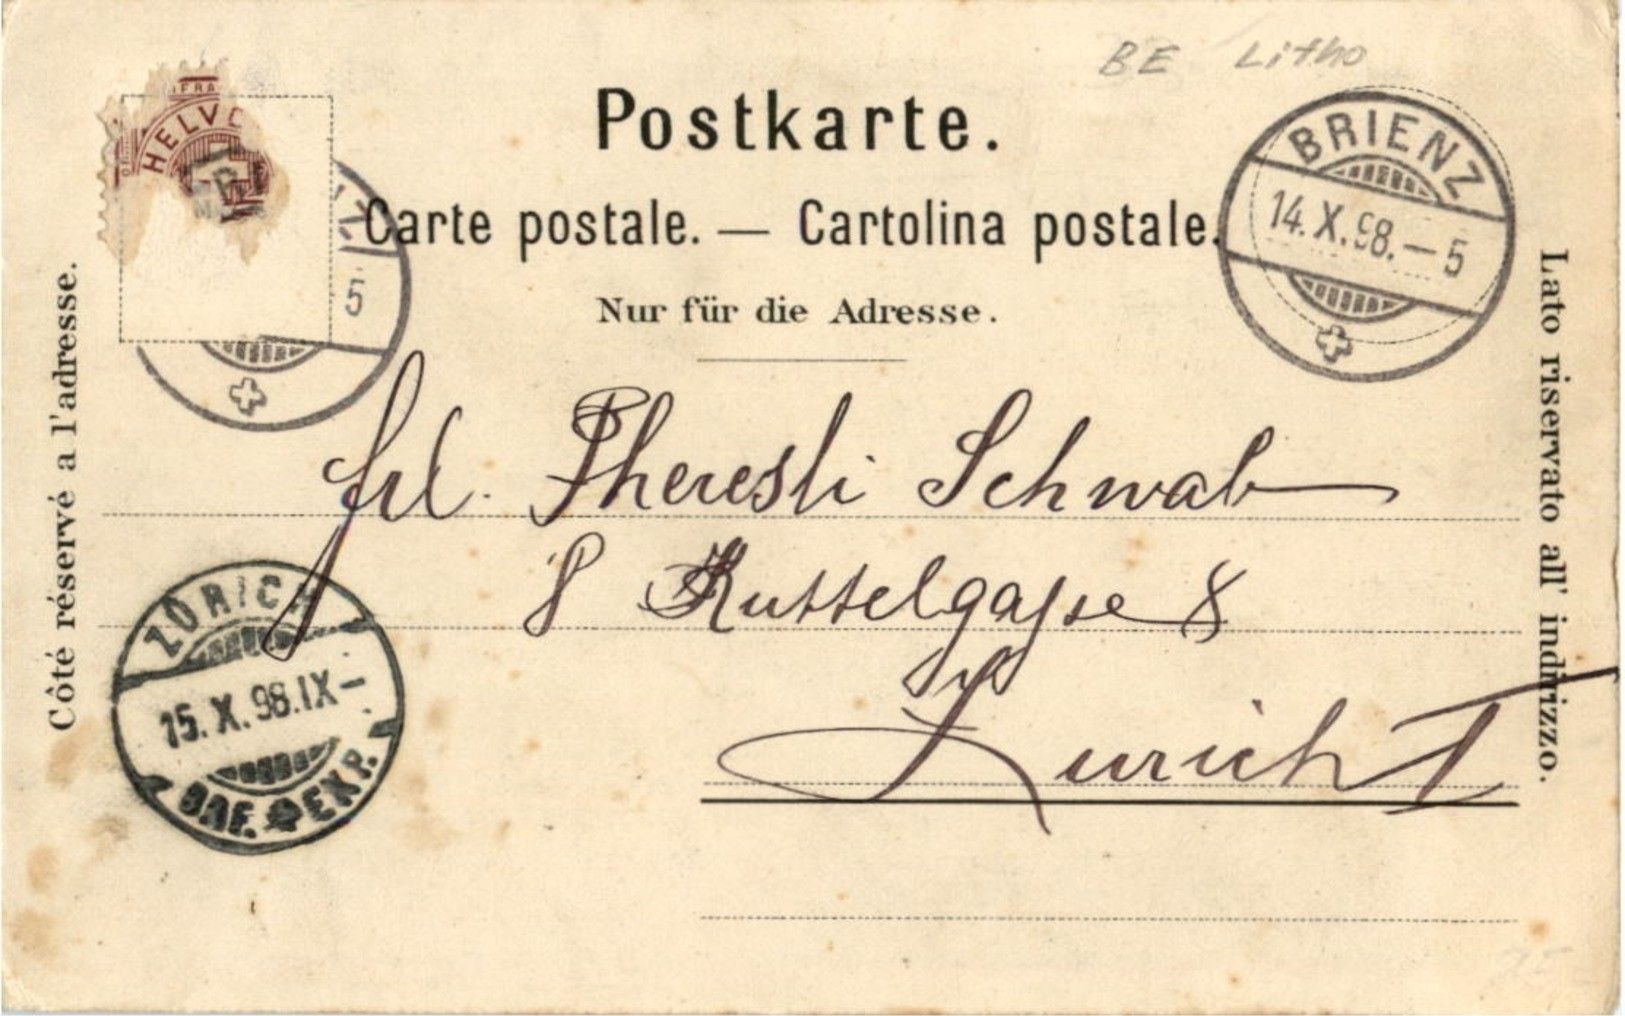 BE Litho
Postkarte.
Carte postale. — Cartolina postale.
Nur für die Adresse.
Côté réservé a l'adresse.
Lato riservato all' indirizzo.
FRA
HELV
5
BRIENZ
14.X.98.—5
Frl. Theresli Schwab
8 Ruttelgasse 8
Zürich I
ZÜRICH
15.X.98.IX—
BRF. EXP.